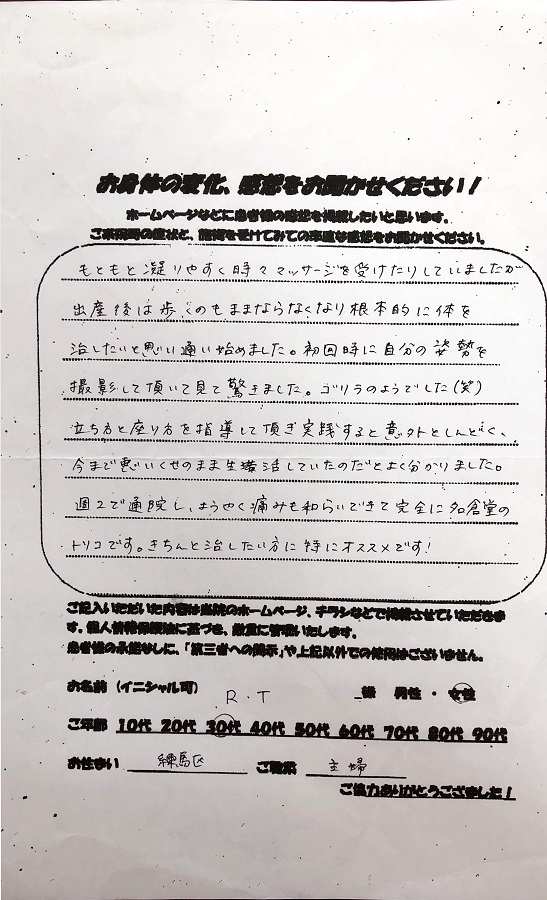 お身体の変化、感想をお聞かせください!
ホームページなどに患者様の感想を掲載したいと思います。
ご来院時の症状と、施術を受けてみての率直な感想をお聞かせください。
もともと凝りやすく時々マッサージを受けたりしていましたが
出産後は歩くのもままならなくなり根本的に体を
治したいと思い通い始めました。初回時に自分の姿勢を
撮影して頂いて見て驚きました。ゴリラのようでした(笑)
立ち方と座り方を指導して頂き実践すると意外としんどく、
今まで悪いくせのまま生活していたのだとよく分かりました。
週2で通院し、ようやく痛みも和らいできて完全に名倉堂の
トリコです。きちんと治したい方に特にオススメです!
ご記入いただいた内容は当院のホームページ、チラシなどで掲載させていただきま
す。個人情報保護法に基づき、厳重に管理いたします。
患者様の承諾なしに、「第三者への開示」や上記以外での使用はございません。
お名前(イニシャル可) R.T 様 男性・女性
ご年齢 10代 20代 30代 40代 50代 60代 70代 80代 90代
お住まい 練馬区 ご職業 主婦
ご協力ありがとうございました!